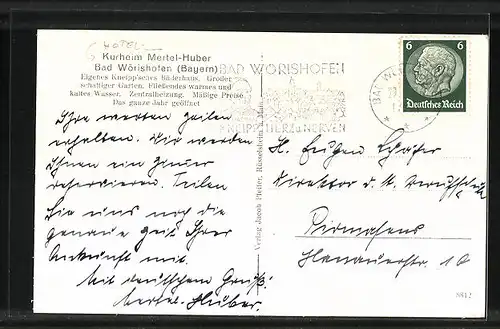 HOTEL
Kurheim Mertel-Huber
Bad Wörishofen (Bayern)
Eigenes Kneipp'sches Bäderhaus. Großer
schattiger Garten. Fließendes warmes und
kaltes Wasser. Zentralheizung. Mäßige Preise.
Das ganze Jahr geöffnet
Ihre werten Zeilen
erhalten. Wir werden
Ihnen ein Zimmer
reservieren. Teilen
Sie uns noch die
genaue Zeit Ihrer
Ankunft mit.
Mit deutschem Gruß!
Mertel-Huber.
Verlag Jacob Pfeifer, Rüsselsheim a. Main
BAD WÖRISHOFEN
HERZ u NERVEN
BAD WÖ
6 6
Deutsches Reich
H. Eugen Schäfer
Direktor d.
Pirmasens
Hanauerstr. 10